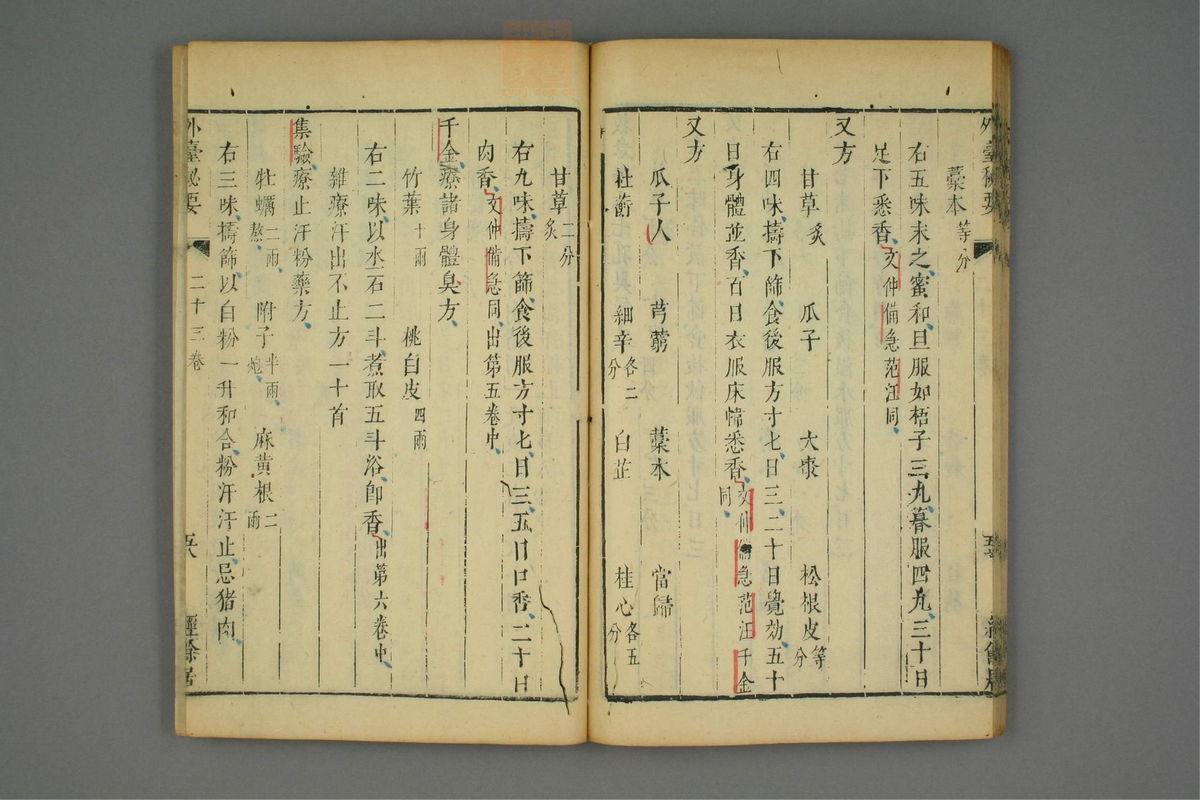 藁本等分
右五味末之蜜和旦服如梧子三丸暮服四丸三十日
足下悉香文仲備急范汪同
又方
甘草炙 瓜子 大棗 松根皮等分
右四味擣下篩食後服方寸匕日三二十日覺効五十
日身體並香百日衣服床幃悉香文仲備急范汪千金同
又方
瓜子人 芎藭 藁本 當歸
杜蘅 細辛各二分 白芷 桂心各五分
甘草二分炙
右九味擣下篩食後服方寸匕日三五日口香二十日
肉香文仲備急同出第五卷中
千金療諸身體臭方
竹葉十兩 桃白皮四兩
右二味以水一石二斗煮取五斗浴即香出第六卷中
雜療汗出不止方一十首
集驗療止汗粉藥方
牡蠣二兩熬 附子半兩炮 麻黃根二兩
右三味擣篩以白粉一升和合粉汗汗止忌猪肉
外臺秘要 二十三卷 五六 經餘居